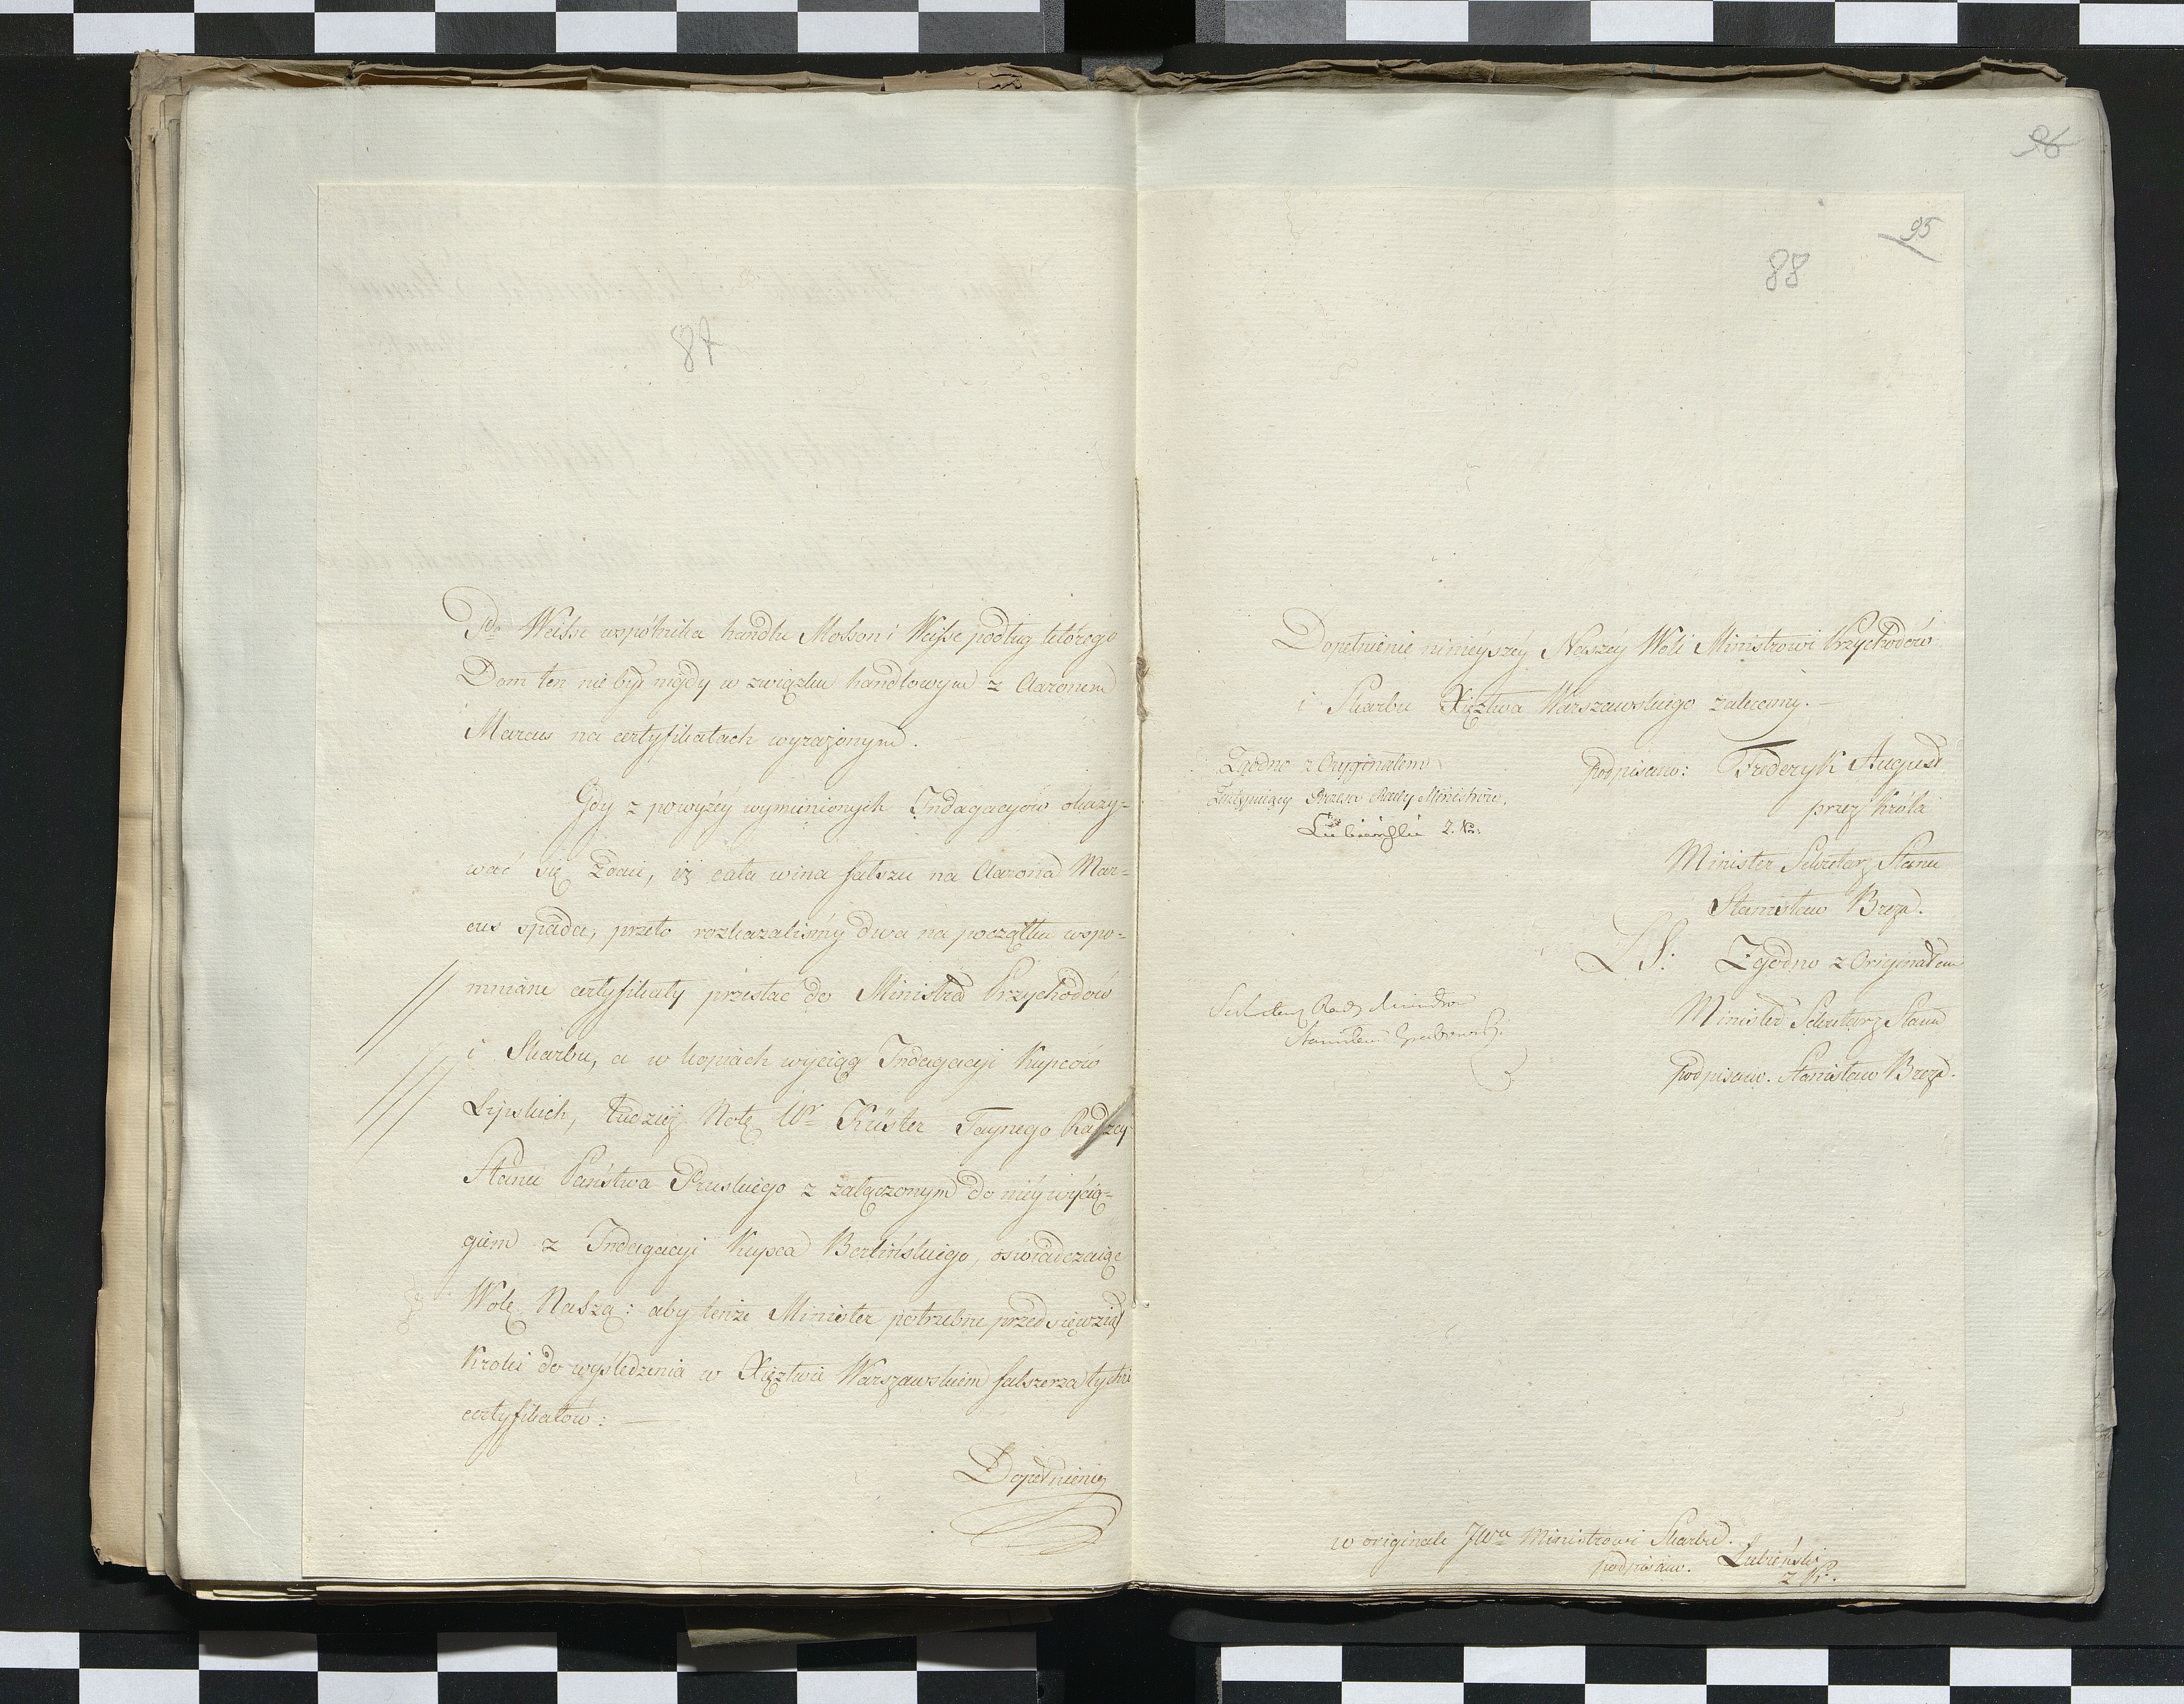 87
Pa Weisse wspólnika handlu Mosson i Weisse podług którego
Dom ten nie był nigdy w związku handlowym z Aaronem
Marcus na certyfikatach wyrażonym.
Gdy z powyżéy wymienionych Indagacyów okazy=
wać się zdaie, iż cała wina fałszu na Aarona Mar=
cus spada, przeto rozkazaliśmy dwa na początku wspo=
mniane certyfikaty przesłać do Ministra Przychodów
i Skarbu, a w kopiach wyciąg Indagacyi Kupców
Lipskich, tudzież Notę Wo Küster Taynego Radzcy
Stanu Państwa Pruskiego z załączonym do niéy wycią=
giem z Indagacyi Kupca Berlińskiego, oświadczaiąc
Wolę Naszą: aby tenże Minister potrzebne przedsięwziął
Kroki do wyśledzenia w Xięztwie Warszawskiem fałszerza tychże
certyfikatów: —
Dopełnienie
96
95
88
Dopełnienie ninieyszéy Naszéy Woli Ministrowi Przychodów
i Skarbu Xięztwa Warszawskiego zalecamy. —
podpisano: Fryderyk August
przez Króla
Minister Sekretarz Stanu
Stanisław Breza.
LS: Zgodno z Originałem
Minister Sekretarz Stanu
podpisano. Stanisław Breza.
Zgodno z Oryginałem
Zastępuiący Prezesa Rady Ministrów.
Łubieński Z. Pr.
Sekretarz Rady Ministrów
Stanisław Grabowski.
w originale JWmu Ministrowi Skarbu.
podpisano. Łubieński
z Pr.